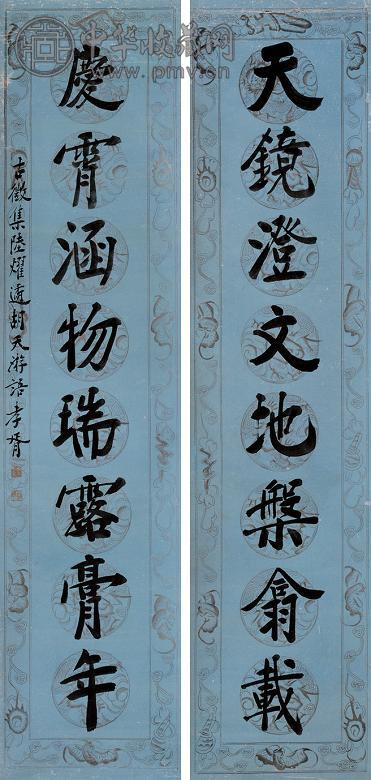 中华收藏网
www.pmv.cn
天鏡澄文地槃翕載
慶霄涵物瑞露膏年
古徵集陸燿遹胡天游語孝胥